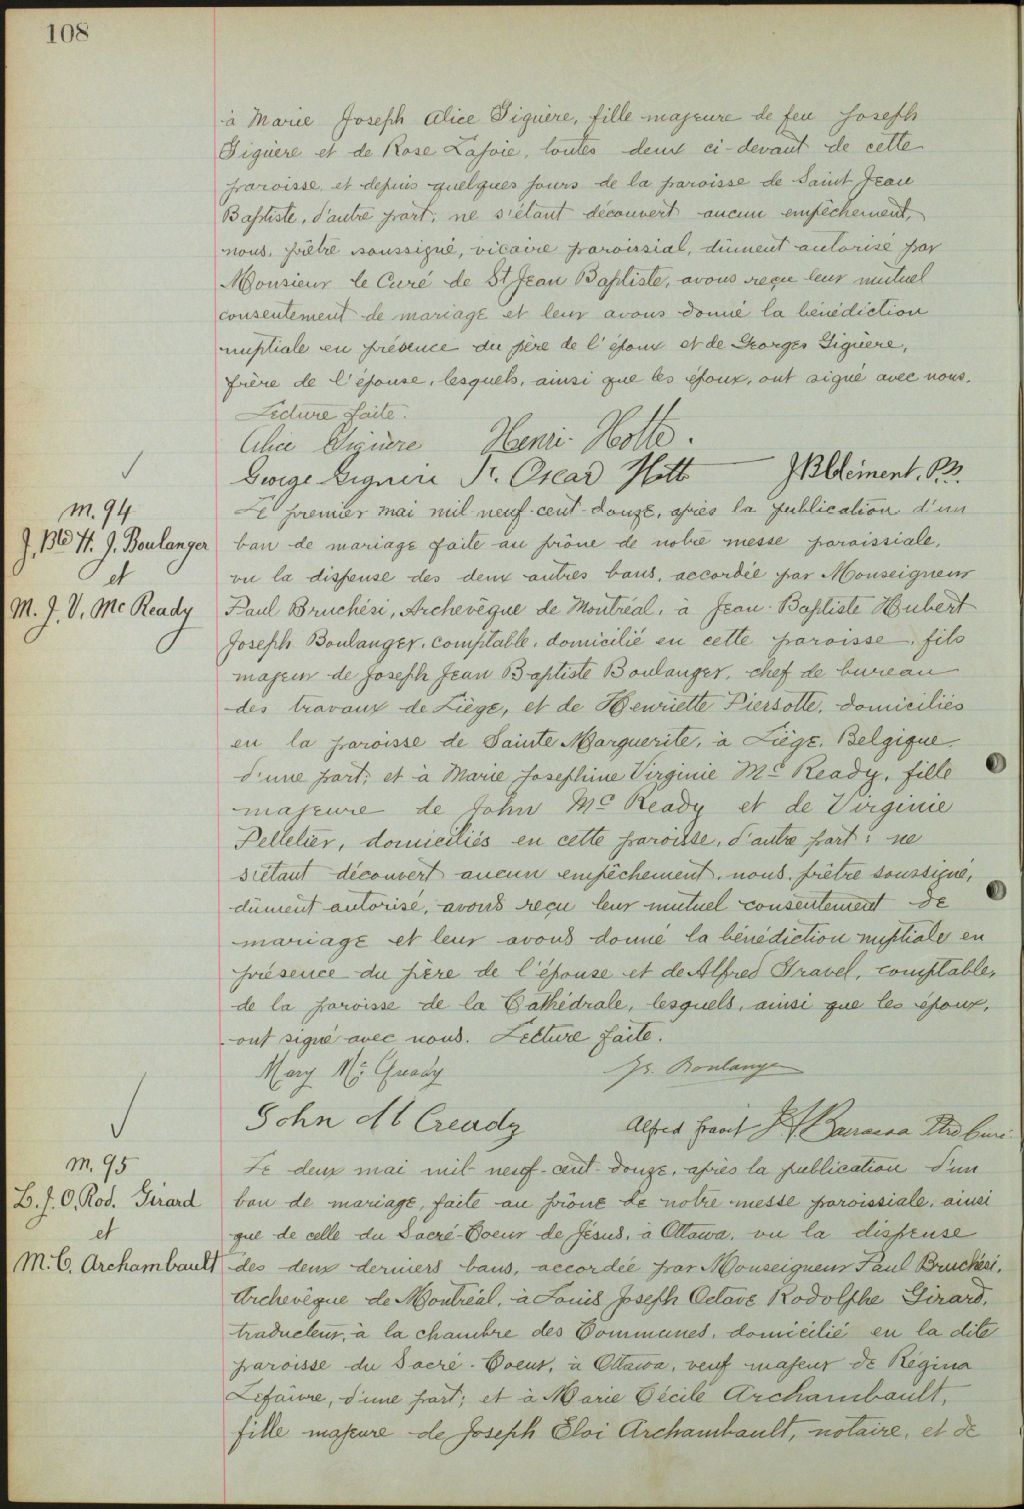 108
à Marie Joseph Alice Giguère, fille majeure de feu Joseph
Giguère et de Rose Lajoie, toutes deux ci-devant de cette
paroisse, et depuis quelques jours de la paroisse de Saint Jean
Baptiste, d'autre part; ne s'étant découvert aucun empêchement,
nous, prêtre soussigné, vicaire paroissial, dûment autorisé par
Monsieur le Curé de St Jean Baptiste, avons reçu leur mutuel
consentement de mariage et leur avons donné la bénédiction
nuptiale en présence du père de l'époux et de Georges Giguère,
frère de l'épouse, lesquels, ainsi que les époux, ont signé avec nous.
Lecture faite.
Alice Giguère Henri Hotte.
George Giguère Oscar Hotte J B Clément, P.
m. 94
J. Bte H. J. Boulanger
et
M. J. V. Mc Ready
Le premier mai mil neuf-cent-douze, après la publication d'un
ban de mariage faite au prône de notre messe paroissiale,
vu la dispense des deux autres bans, accordée par Monseigneur
Paul Bruchési, Archevêque de Montréal, à Jean-Baptiste Hubert
Joseph Boulanger, comptable, domicilié en cette paroisse, fils
majeur de Joseph Jean Baptiste Boulanger, chef de bureau
des travaux de Liège, et de Henriette Piersotte, domiciliés
en la paroisse de Sainte Marguerite, à Liège, Belgique,
d'une part; et à Marie Josephine Virginie Mc Ready, fille
majeure de John Mc Ready et de Virginie
Pelletier, domiciliés en cette paroisse, d'autre part; ne
s'étant découvert aucun empêchement, nous, prêtre soussigné,
dûment autorisé, avons reçu leur mutuel consentement de
mariage et leur avons donné la bénédiction nuptiale en
présence du père de l'épouse et de Alfred Gravel, comptable,
de la paroisse de la Cathédrale, lesquels, ainsi que les époux,
ont signé avec nous. Lecture faite.
Mary Mc Gready Boulanger
John Mc Cready Alfred Gravel Ptre Curé
m. 95
L. J. O. Rod. Girard
et
M. C. Archambault
Le deux mai mil-neuf-cent-douze, après la publication d'un
ban de mariage, faite au prône de notre messe paroissiale, ainsi
que de celle du Sacré-Coeur de Jésus, à Ottawa, vu la dispense
des deux derniers bans, accordée par Monseigneur Paul Bruchési,
Archevêque de Montréal, à Louis Joseph Octave Rodolphe Girard,
traducteur, à la chambre des Communes, domicilié en la dite
paroisse du Sacré-Coeur, à Ottawa, veuf majeur de Régina
Lefaivre, d'une part; et à Marie Cécile Archambault,
fille majeure de Joseph Eloi Archambault, notaire, et de